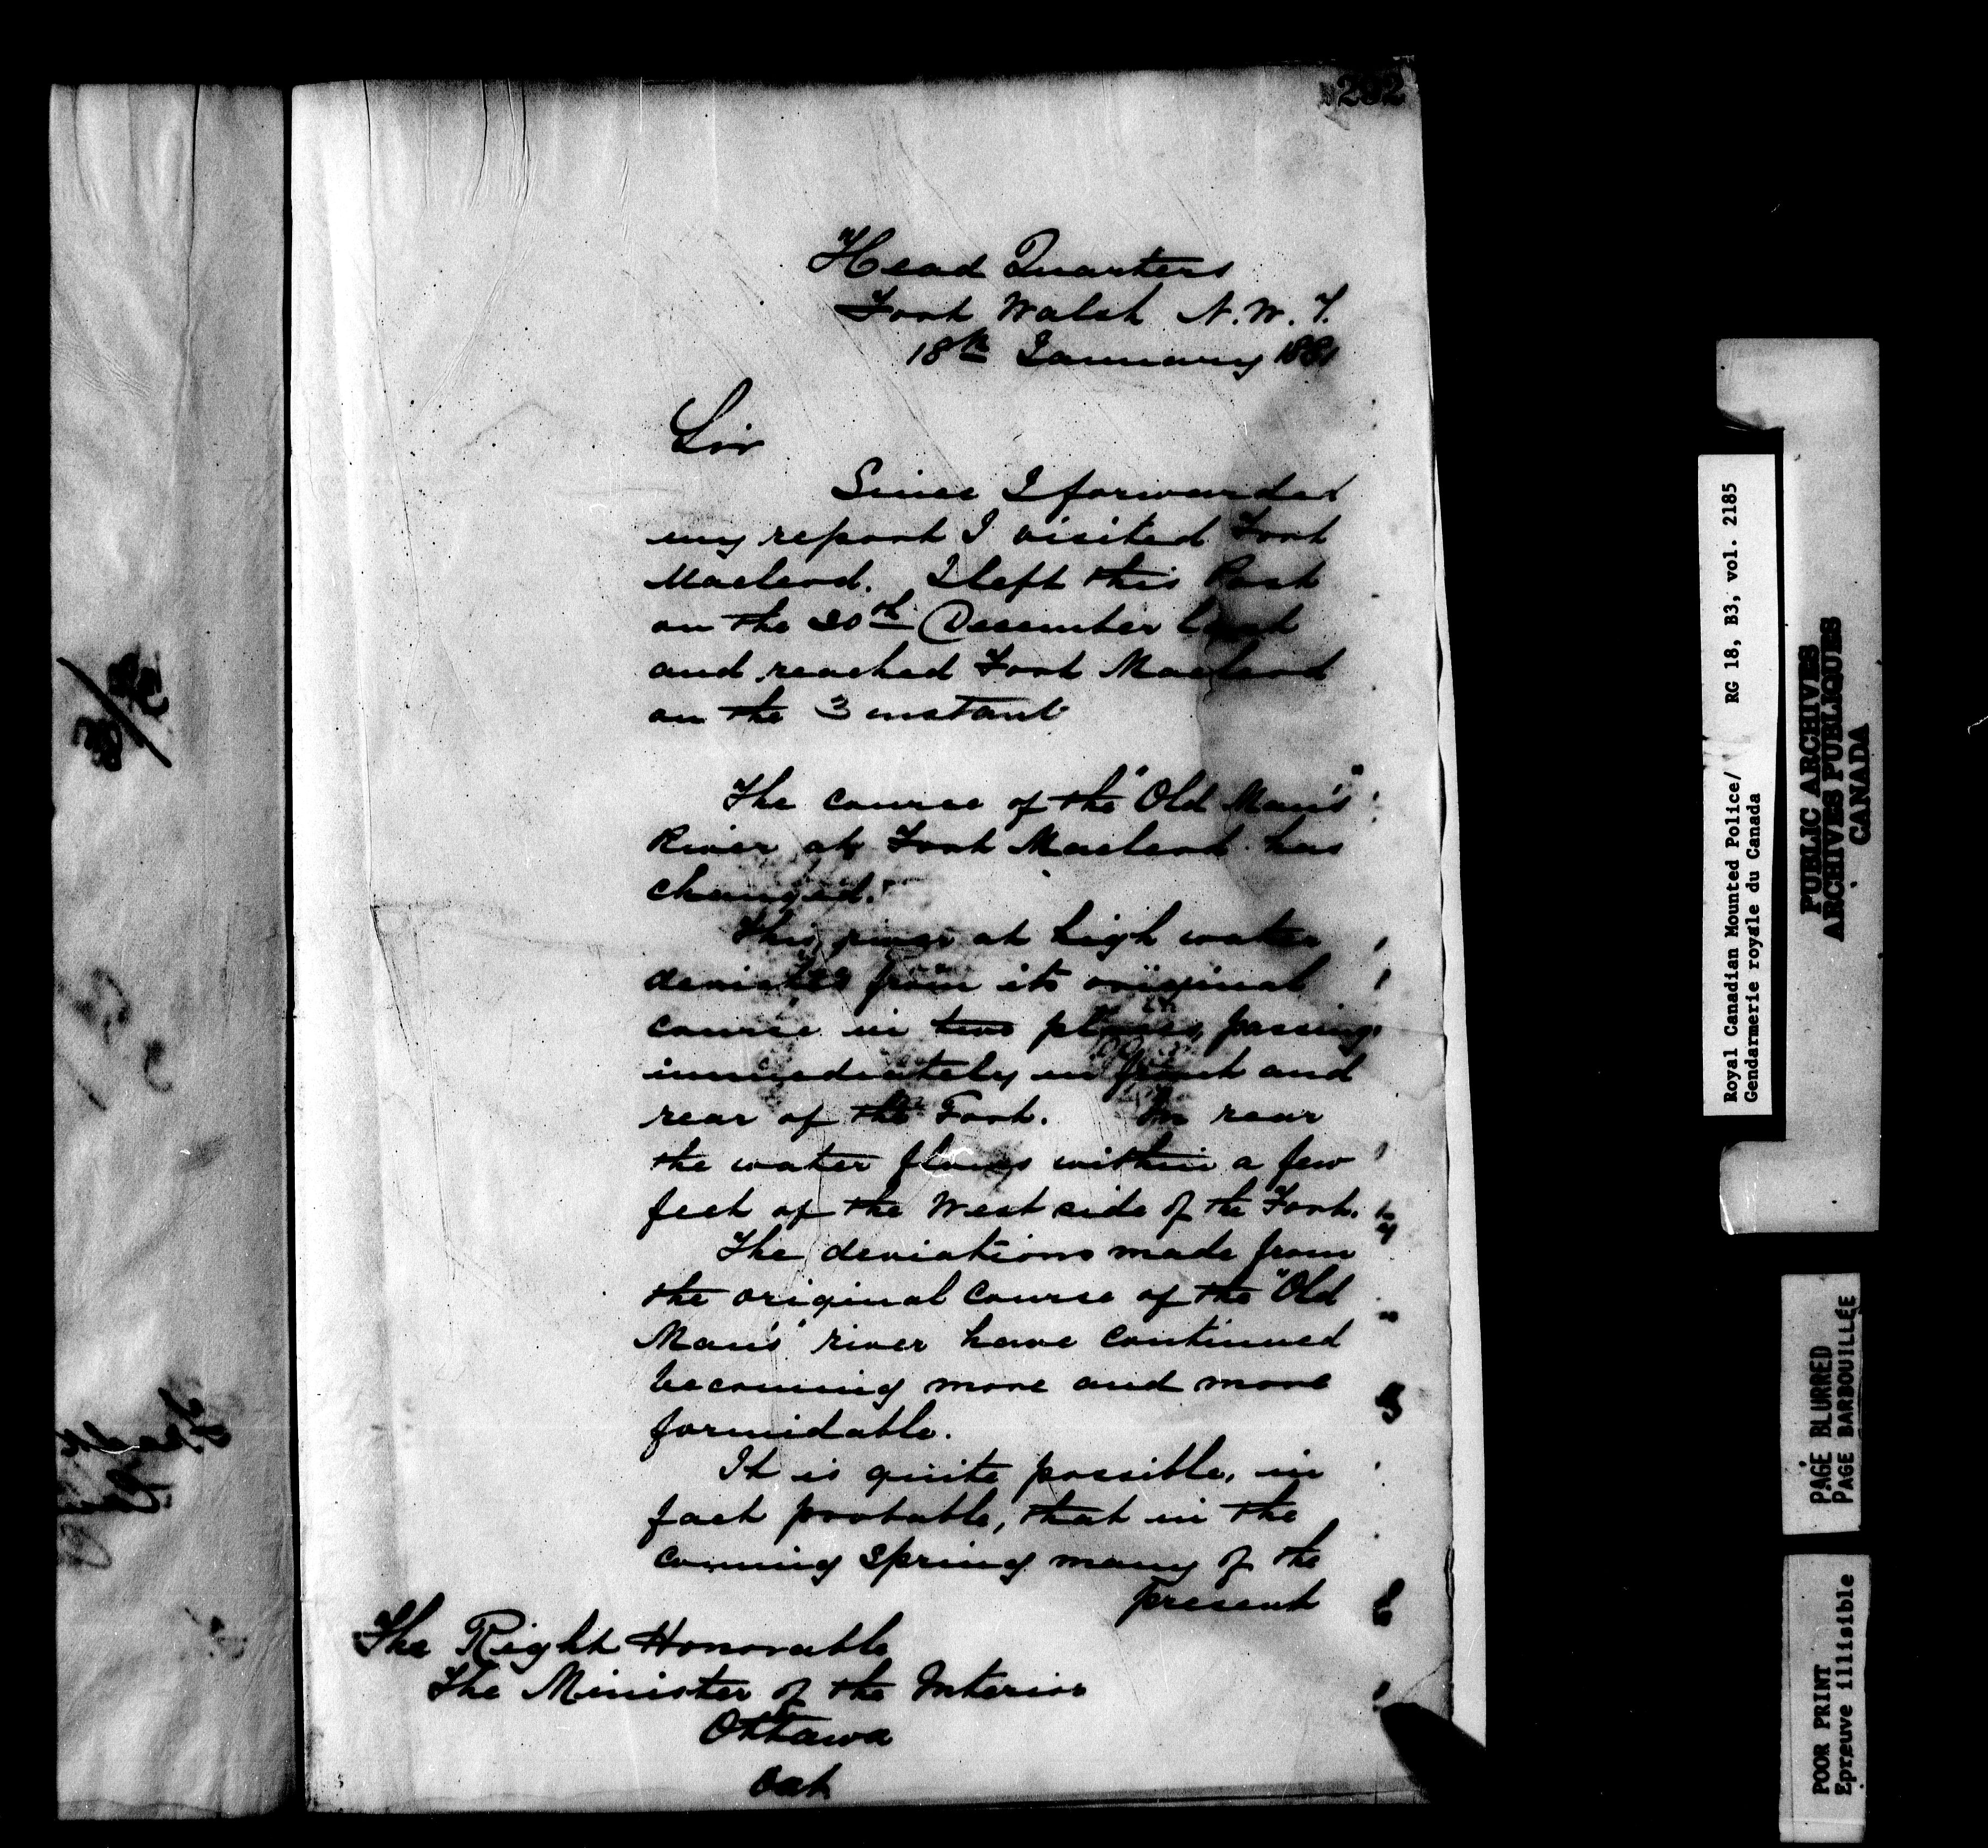 292
Head Quarters
Fort Walsh N.W.T.
18th January 1881
Sir
Since I forwarded
my report I visited Fort
Macleod. I left this Post
on the 30th December last
and reached Fort Macleod
on the 3 instant
The course of the "Old Man's"
River at Fort Macleod has
changed.
This river at high water
deviates from its original
course in two places, passing
immediately in front and
rear of the Fort. In rear
the water flows within a few
feet of the West side of the Fort.
The deviations made from
the original course of the "Old
Man's" river have continued
becoming more and more
formidable.
It is quite possible, in
fact probable, that in the
coming Spring many of the
present
The Right Honorable
The Minister of the Interior
Ottawa
Ont
Royal Canadian Mounted Police/ RG 18, B3, vol. 2185
Gendarmerie royale du Canada
PUBLIC ARCHIVES
ARCHIVES PUBLIQUES
CANADA
PAGE BLURRED
PAGE BARBOUILLÉE
POOR PRINT
Epreuve illisible